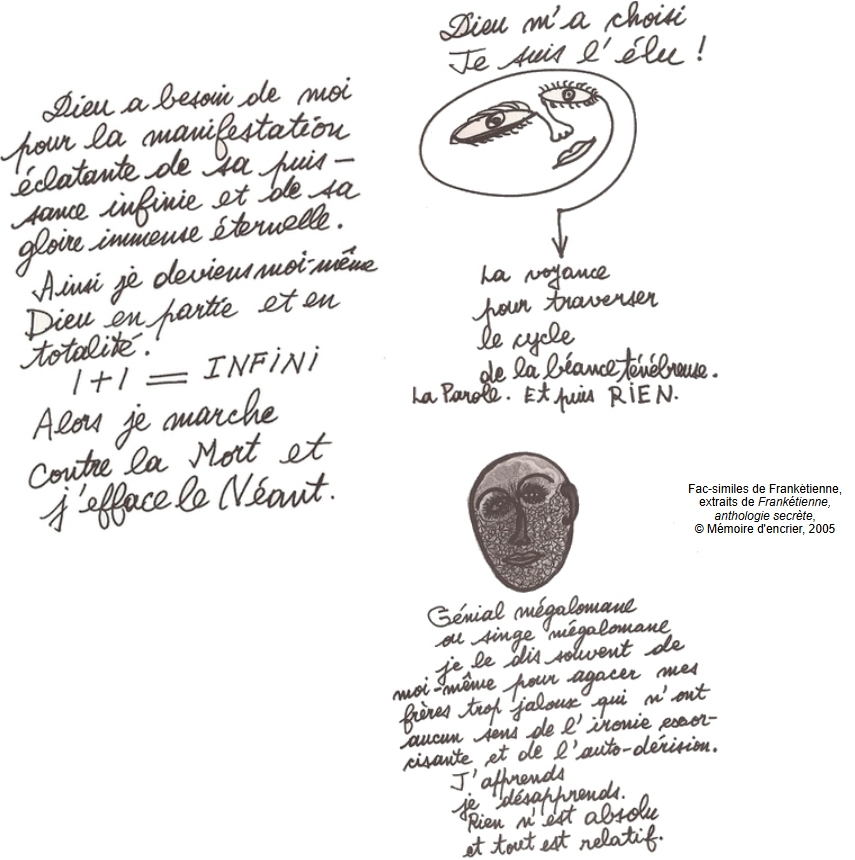 Dieu a besoin de moi
pour la manifestation
éclatante de sa puis-
sance infinie et de sa
gloire immense éternelle.
Ainsi je deviens moi-même
Dieu en partie et en
totalité.
1 + 1 = INFiNi
Alors je marche
contre la Mort et
j'efface le Néant.
Dieu m'a choisi
Je suis l'élu !
La voyance
pour traverser
le cycle
de la béance ténébreuse.
La Parole. Et puis RIEN.
Génial mégalomane
ou singe mégalomane
je le dis souvent de
moi-même pour agacer mes
frères trop jaloux qui n'ont
aucun sens de l'ironie exor-
cisante et de l'auto-dérision.
J'apprends
je désapprends.
Rien n'est absolu
et tout est relatif.
Fac-similes de Frankètienne,
extraits de Frankétienne,
anthologie secrète,
© Mémoire d'encrier, 2005